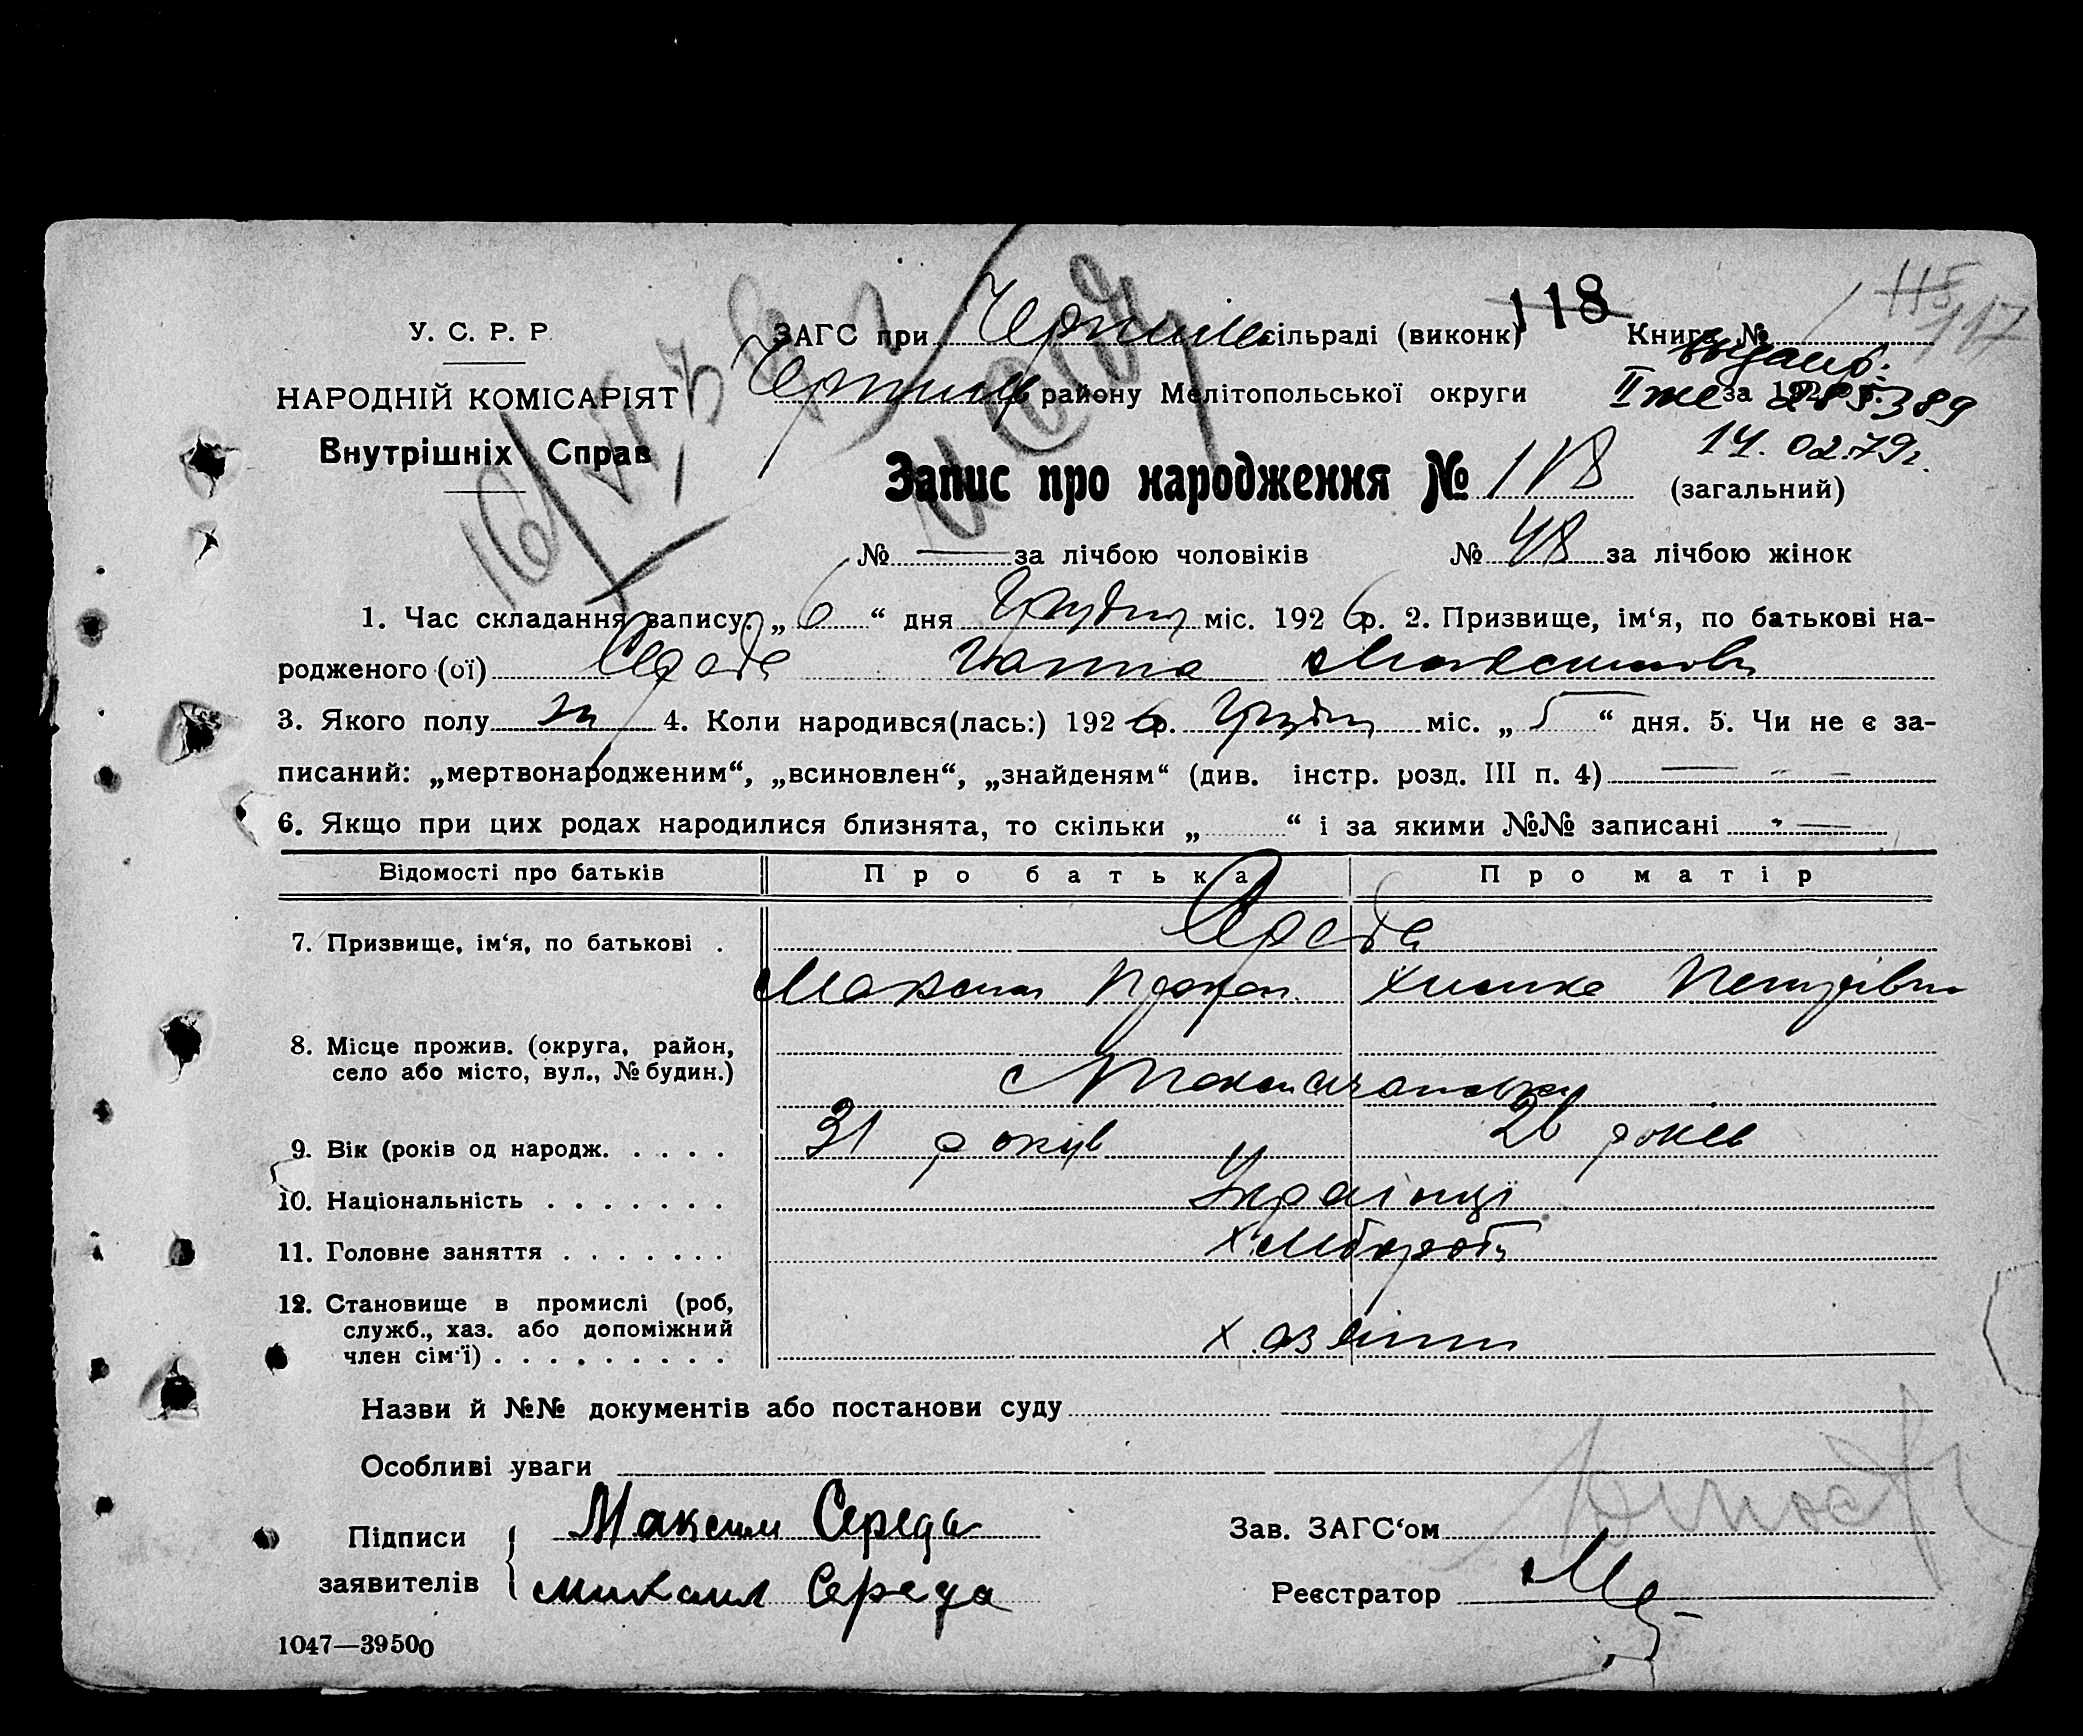 118
115
117
У. С. Р. Р.
ЗАГС при сільраді (виконк) Книга №
видано:
НАРОДНІЙ КОМІСАРІЯТ
району Мелітопольської округи за 192 р.
II же 285389
Внутрішніх Справ
14.02.79г.
Запис про народження № 118 (загальний)
№ — за лічбою чоловіків № 48 за лічбою жінок
1. Час складання запису: „ 6 “ дня Грудня міс. 192 6 р. 2. Призвище, ім‘я, по батькові на-
родженого (ої) Середа Ганна Максимовн
3. Якого полу ж 4. Коли народився(лась:) 192 6 р. Грудня міс. „ 5 “ дня. 5. Чи не є за-
писаний: „мертвонародженим“, „всиновлен“, „знайденям“ (див. інстр. розд. III п. 4) — „ —
6. Якщо при цих родах народилися близнята, то скільки „ “ і за якими №№ записані „ —
Відомості про батьків Про батька Про матір
7. Призвище, ім‘я, по батькові . Середа
Максим Прокоп. Химка Петрівна
8. Місце прожив. (округа, район,
село або місто, вул., № будин.)
9. Вік (років од народж. . . . . 31 років 26 років
10. Національність . . . . . . . Українці
11. Головне заняття . . . . . . . Хлібороб
12. Становище в промислі (роб,
служб., хаз. або допоміжний
член сім‘ї) . . . . . . . . . хазяіни
Назви й №№ документів або постанови суду
Особливі уваги
Підписи
заявителів
Максим Середа
михаил Середа
Зав. ЗАГС‘ом
Реєстратор
1047—39500